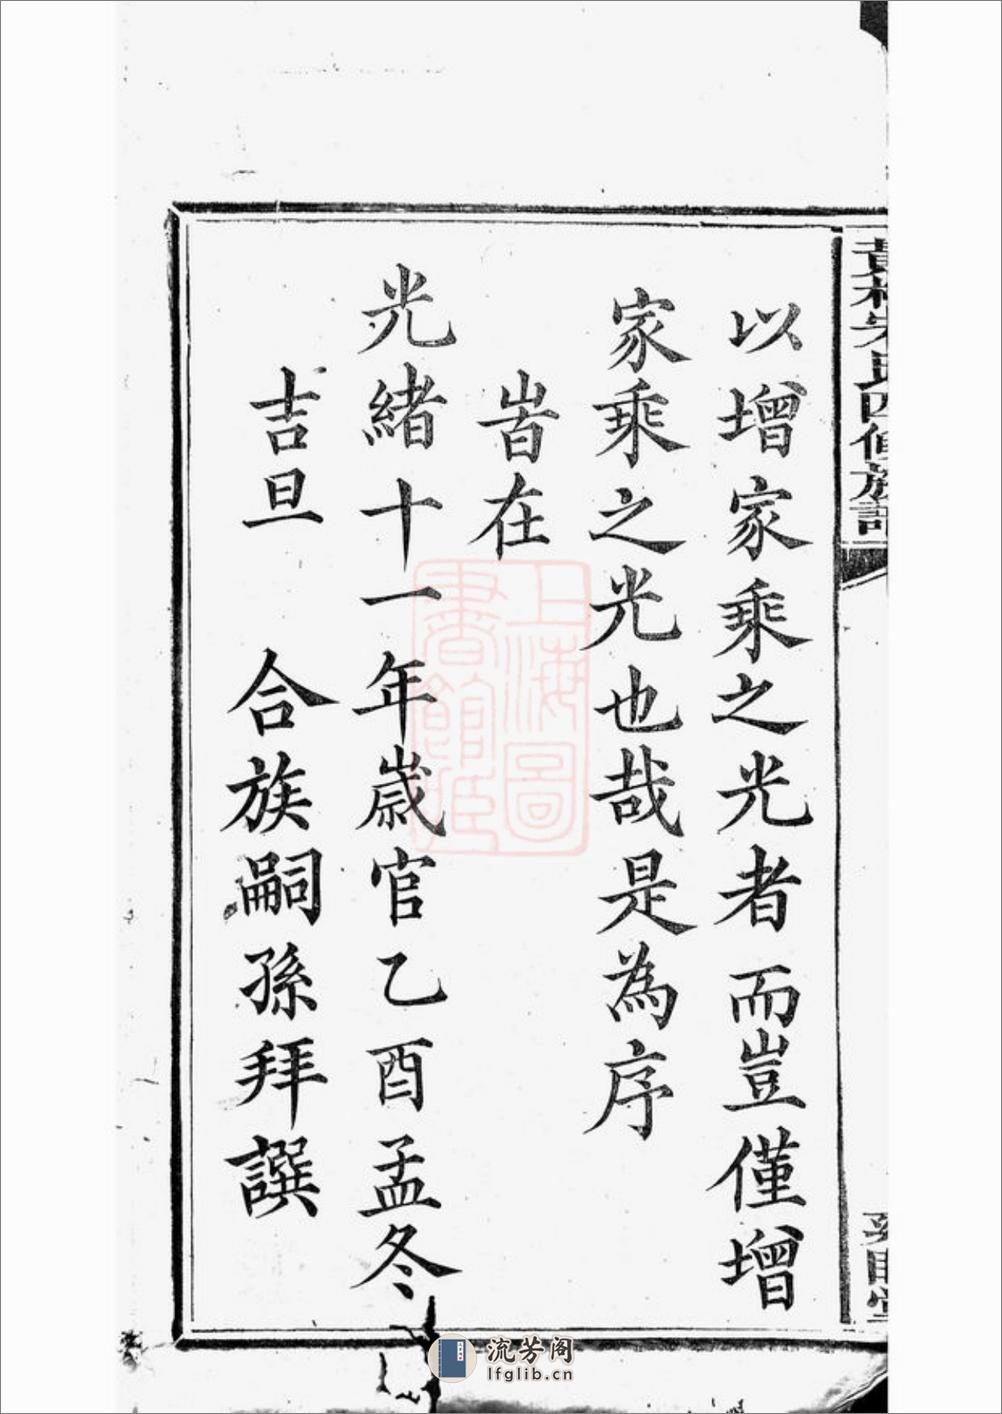 以增家乘之光者而豈僅增
家乘之光也哉是為序
旹在
光緒十一年歲官乙酉孟冬
吉旦　合族嗣孫拜譔
上海圖
書館藏
流芳阁
lfglib.cn